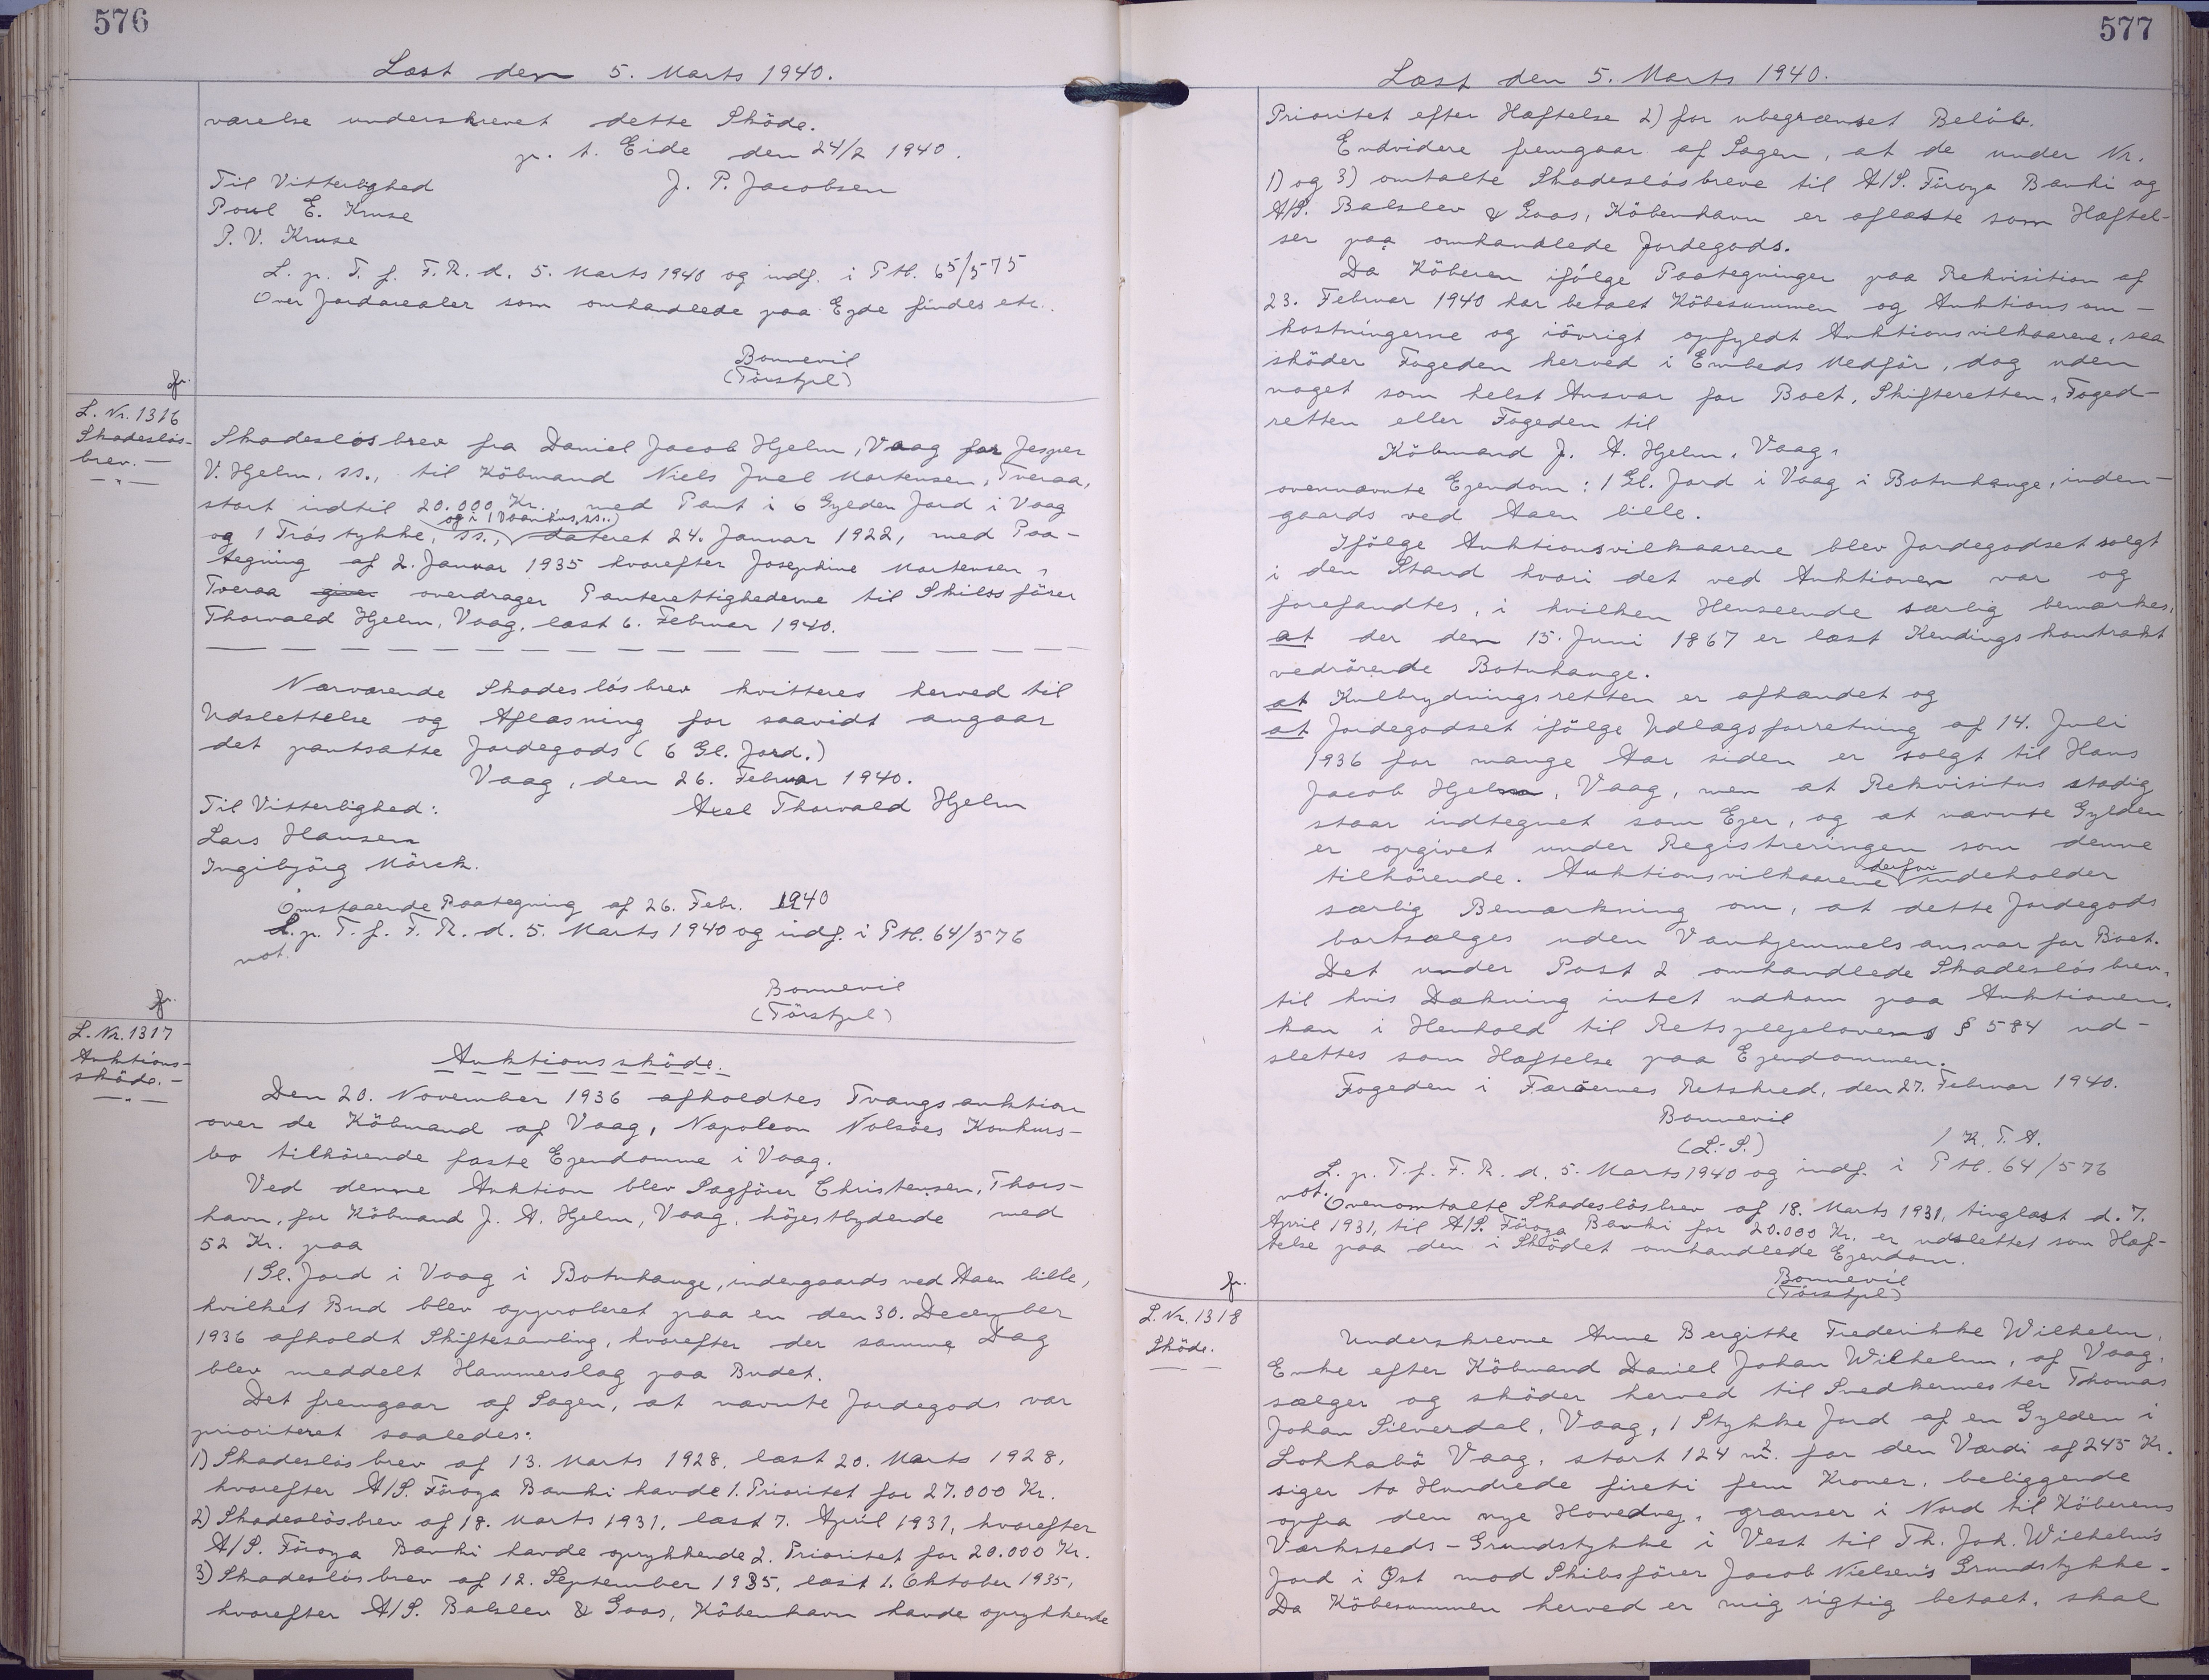 576
Læst den 5. Marts 1940.
værelse underskrevet dette Sköde.
p. t. Eide den 24/2 1940.
Til Vitterlighed J. P. Jacobsen
Poul E. Kruse
P. V. Kruse
L. p. T. f. F. R. d. 5. Marts 1940 og indf. i Ptl. 65/575
Over Jordarealer som omhandlede paa Ejde findes etc..
Bonnevie
fr.
L. Nr. 1316
Skadeslös-
brev. —
Skadeslösbrev fra Daniel Jacob Hjelm, Vaag for Jesper
V. Hjelm, ss., til Köbmand Niels Juel Mortensen, Tveraa,
stort indtil 20.000 Kr., med Pant i 6 Gylden Jord i Vaag
og 1 Tröstykke, ss., dateret 24. Januar 1922, med Paa-
tegning af 2. Januar 1935 hvorefter Josephine Mortensen,
Tveraa giver overdrager Panterettighederne til Skibsförer
Thorvald Hjelm, Vaag, læst 6. Februar 1940.
Nærværende Skadeslösbrev kvitteres herved til
Udslettelse og Aflæsning for saavidt angaar
det pantsatte Jordegods (6 Gl. Jord.)
Vaag, den 26. Februar 1940.
Til Vitterlighed: Axel Thorvald Hjelm
Lars Hansen
Ingibjörg Mörck.
Omstaaende Paategning af 26. Febr. 1940
L. p. T. f. F. R. d. 5. Marts 1940 og indf. i Ptl. 64/576
not.
Bonnevie
fr.
L. Nr. 1317
Auktions-
sköde. —
Auktionssköde.
Den 20. November 1936 afholdtes Tvangsauktion
over de Köbmand af Vaag, Napoleon Nolsöes Konkurs-
bo tilhörende faste Ejendomme i Vaag.
Ved denne Auktion blev Sagförer Christensen, Thors-
havn, for Köbmand J. A. Hjelm, Vaag, höjestbydende med
52 Kr. paa
1 Gl. Jord i Vaag i Botnhauge, indengaards ved Aaen lille,
hvilket Bud blev approberet paa en den 30. December
1936 afholdt Skiftesamling, hvorefter der samme Dag
blev meddelt Hammerslag paa Budet.
Det fremgaar af Sagen, at nævnte Jordegods var
prioriteret saaledes:
1) Skadeslösbrev af 13. Marts 1928, læst 20. Marts 1928,
hvorefter A/S. Föroya Banki havde 1. Prioritet for 27.000 Kr.
2) Skadeslösbrev af 18. Marts 1931, læst 7. April 1931, hvorefter
A/S. Föroya Banki havde oprykkende 2. Prioritet for 20.000 Kr.
3) Skadeslösbrev af 12. September 1935, læst 1. Oktober 1935,
hvorefter A/S. Balslev & Goos, Köbenhavn havde oprykkende
577
Læst den 5. Marts 1940.
Prioritet efter Hæftelse 2) for ubegrænset Belöb.
Endvidere fremgaar af Sagen, at de under Nr.
1) og 3) omtalte Skadeslösbreve til A/S. Föroya Banki og
A/S. Balslev & Goos, Köbenhavn er aflæste som Hæftel-
ser paa omhandlede Jordegods.
Da Köberen ifölge Paategninger paa Rekvisition af
23. Februar 1940 har betalt Köbesummen og Auktionsom-
kostningerne og iövrigt opfyldt Auktionsvilkaarene, saa
sköder Fogeden herved i Embeds Medför, dog uden
noget som helst Ansvar for Boet, Skifteretten, Foged-
retten eller Fogeden til
Köbmand J. A. Hjelm, Vaag,
ovennævnte Ejendom: 1 Gl. Jord i Vaag i Botnhauge, inden-
gaards ved Aaen lille.
Ifölge Auktionsvilkaarene blev Jordegodset solgt
i den Stand hvori det ved Auktionen var og
forefandtes, i hvilken Henseende særlig bemærkes,
at der den 15. Juni 1867 er læst Kendingskontrakt
vedrörende Botnhauge.
at Kulbrydningsretten er afhændet og
at Jordegodset ifölge Udlægsforretning af 14. Juli
1936 for mange Aar siden er solgt til Hans
Jacob Hjelm, Vaag, men at Rekvisitus stadig
staar indtegnet som Ejer, og at nævnte Gylden
er opgivet under Registreringen som denne
tilhörende. Auktionsvilkaarene derfor indeholder
særlig Bemærkning om, at dette Jordegods
bortsælges uden Vanhjemmelsansvar for Boet.
Det under Post 2 omhandlede Skadeslösbrev,
til hvis Dækning intet udkom paa Auktionen,
kan i Henhold til Retsplejelovens § 584 ud-
slettes som Hæftelse paa Ejendommen.
Fogeden i Færöernes Retskred, den 27. Februar 1940.
Bonnevie
(L. S.) / K. T. A.
L. p. T. f. F. R. d. 5. Marts 1940 og indf. i Ptl. 64/576
not.
Ovenomtalte Skadeslösbrev af 18. Marts 1931, tinglæst d. 7.
April 1931, til A/S. Föroya Banki for 20.000 Kr. er udslettet som Hæf-
telse paa den i Sködet omhandlede Ejendom.
Bonnevie
fr.
L. Nr. 1318
Sköde.
Underskrevne Anne Bergithe Frederikke Wilhelm,
Enke efter Köbmand Daniel Johan Wilhelm, af Vaag,
sælger og sköder herved til Snedkermester Thomas
Johan Silverdal, Vaag, 1 Stykke Jord af en Gylden i
Lokhabö Vaag, stort 124 m². for den Værdi af 245 Kr.
siger to Hundrede fireti fem Kroner, beliggende
opfra den nye Hovedvej, grænser i Nord til Köberens
Værksteds-Grundstykke i Vest til Th. Joh. Wilhelm's
Jord i Øst mod Skibsförer Jacob Nielsen's Grundstykke.
Da Köbesummen herved er mig rigtig betalt, skal